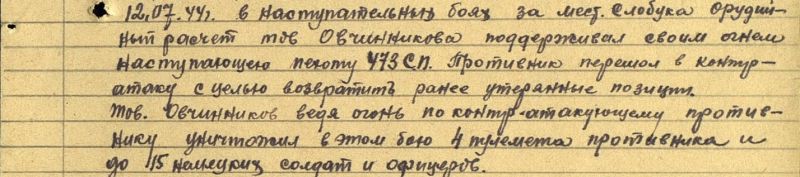 12.07.44г. в наступательных боях за мест. Слобука орудий-
ный расчет тов Овчинникова поддерживал своим огнем
наступающею пехоту 473 С.П. Противник перешол в контр-
атаку с целью возвратить ранее утерянные позиции.
Тов. Овчинников ведя огонь по контр-атакующему против-
нику уничтожил в этом бою 4 пулемета противника и
до 15 немецких солдат и офицеров.